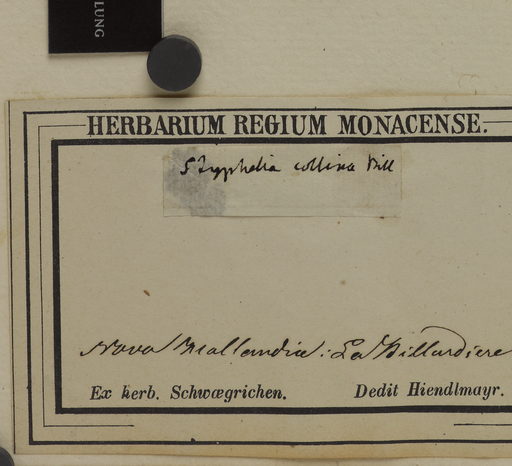 LUNG
HERBARIUM REGIUM MONACENSE.
Styphelia collina Bill
Nova Hollandia: La Billardiere
Ex herb. Schwægrichen. Dedit Hiendlmayr.